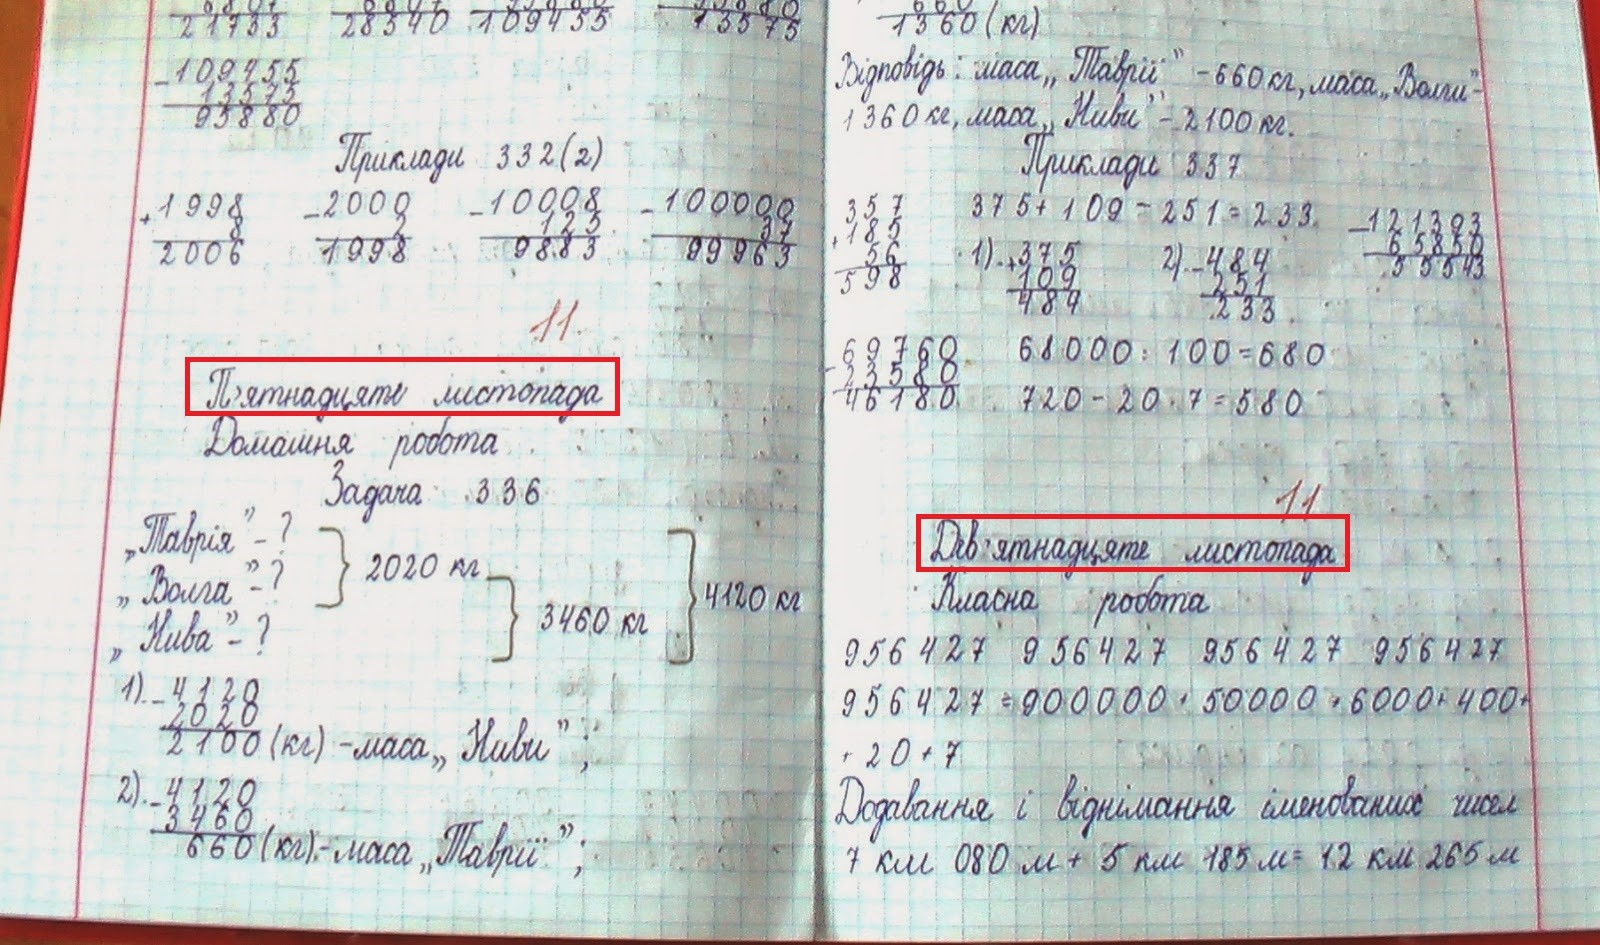 21733 28340 109455 13575
- 109455
13575
95880
Приклади 332(2)
+1998 -2000 -10008 -100000
8 2 125 37
2006 1998 9883 99963
11
П'ятнадцяте листопада
Домашня робота
Задача 336
„Таврія” - ?
„Волга” - ?
„Нива” - ?
2020 кг
3460 кг
4120 кг
1). -4120
2020
2100 (кг) - маса „Ниви”;
2). -4120
3460
660 (кг). - маса „Таврії”;
1360 (кг)
Відповідь: маса „Таврії” - 660 кг, маса „Волги” -
1360 кг, маса „Ниви” - 2100 кг.
Приклади 337
357
+185
56
598
375 + 109 - 251 = 233
1). +375
109
484
2). -484
251
233
-121393
65850
55543
69760
-23580
46180
68000 : 100 = 680
720 - 20 · 7 = 580
11
Дев'ятнадцяте листопада
Класна робота
956427 956427 956427 956427
956427 = 900000 + 50000 + 6000 + 400 +
+ 20 + 7
Додавання і віднімання іменованих чисел
7 км 080 м + 5 км 185 м = 12 км 265 м